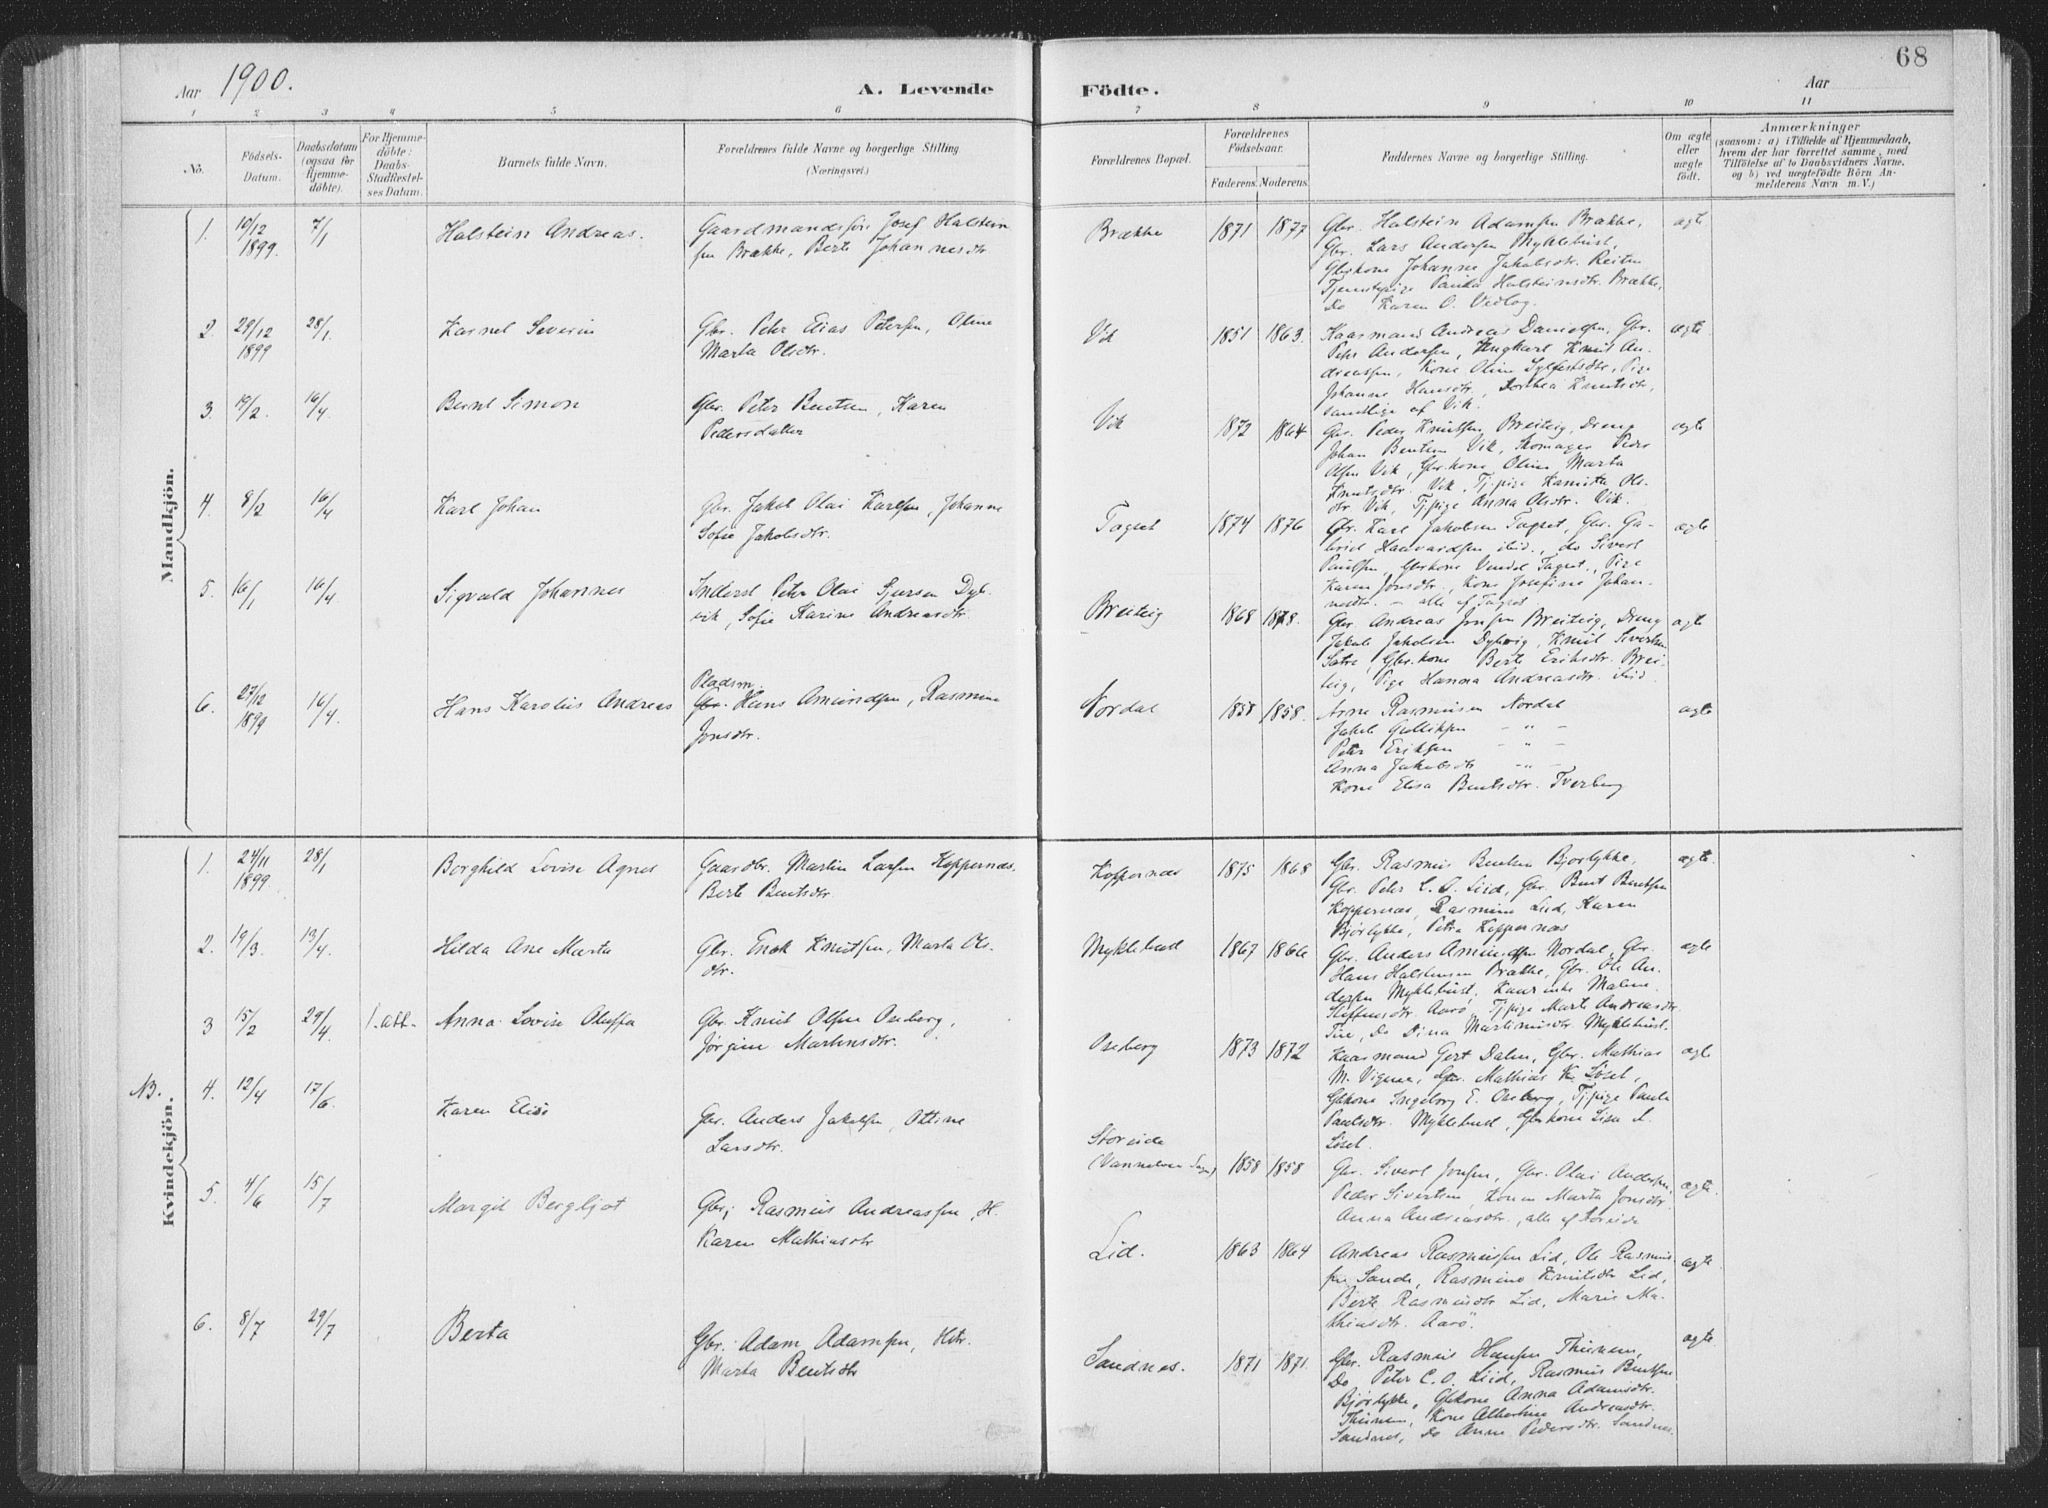 68
Aar 1900.
A. Levende Födte.
Aar
1 2 3 4 5 6 7 8 9 10 11
No.
Födsels-
Datum.
Daabsdatum
(ogsaa för
Hjemme-
döbte).
For Hjemme-
döbte:
Daabs-
Stadfæstel-
ses Datum.
Barnets fulde Navn.
Forældrenes fulde Navne og borgerlige Stilling.
(Næringsvei.)
Forældrenes Bopæl.
Forældrenes
Födselsaar.
Faderens. Moderens.
Faddernes Navne og borgerlige Stilling.
Om ægte
eller
uægte
födt.
Anmærkninger
(saasom: a) i Tilfælde af Hjemmedaab,
hvem der har forrettet samme, med
Tilföielse af to Daabsvidners Navne.
og b) ved uægtefödte Börn An-
melderens Navn m. V.)
Mandkjön.
1. 10/12 1899. 7/1
Halstein Andreas.
Gaardmandsför. Josef Halstein
sen Brække, Berte Johannesdtr
Brække
1871 1877
Gbr. Halstein Adamsen Brække,
Gbr. Lars Andersen Myklebust,
Gbrkone Johanne Jakobsdtr. Reiten
Tjenestepige Paula Halsteinsdtr. Brække,
Do Karen O. Vedlog.
ægte
2. 29/12 1899 28/1.
Karnel Severin
Gbr. Petr Elias Petersen, Oline
Marta Olsdtr.
Vik
1851 1863.
Kaarmand Andreas Danielsen, Gbr.
Petr Andersen, Ungkarl Knut An-
dreassen, Kone Oline Sylfestsdtr, Pige
Johanne Hansdtr, Dorthea Knutsdtr,
samtlige af Vik.
ægte
3 19/2. 16/4.
Bernt Simon
Gbr. Peter Bentsen, Karen
Pedersdatter
Vik
1872 1864
Gbr. Peder Knutsen Breiteig, Dreng
Johan Bentsen Vik, Skomager Peder
Olsen Vik, Gbrkone Oline Marta
Knutsdtr. Vik, Tj.pige Hanitte Ols-
dtr Vik, Tj.pige Anna Olsdtr. Vik.
ægte
4. 8/2 16/4
Karl Johan
Gbr. Jakob Olai Karlsen, Johanne
Sofie Jakobsdtr.
Tagset
1874 1876
Gbr. Karl Jakobsen Tagset, Gbr. Ga-
briel Haavardsen ibid., do Sivert
Paulsen, Gbrkone Vendel Tagset, Pige
Karen Jonsdtr. Kone Josefine Johan-
nesdtr. – alle af Tagset
ægte
5. 16/1 16/4.
Sigvald Johannes
Inderst Petr Olai Sjursen Dyb-
vik, Sofie Karine Andreasdtr.
Breiteig
1868 1878.
Gbr. Andreas Jonsen Breiteig, Dreng
Jakob Jakobsen Dybvig, Knut Sivertsen
Sætre, Gbr.kone Berte Eriksdtr. Brei-
teig, Pige Hanna Andreasdtr. ibid.
ægte
6. 27/12 1899 16/4.
Hans Karolius Andreas
Pladsm.
Gbr. Hans Amundsen, Rasmine
Jonsdtr.
Nordal
1857 1858.
Arne Rasmusen Nordal
Jakob Gullikssen – " –
Peter Eriksen – " –
Anna Jakobsdtr – " –
Kone Elisa Bentsdtr. Tverberg
ægte
Kvindekjön.
1. 24/11 1899 28/1
Borghild Lovise Agnes
Gaardbr. Martin Larsen Koppernæs.
Berte Bentsdtr.
Koppernæs
1875 1868
Gbr. Rasmus Bentsen Bjørlykke,
Gbr. Peter C. O. Liid, Gbr. Bent Bentsen
Koppernæs, Rasmine Liid, Karen
Bjørlykke, Petra Koppernæs
ægte.
2. 19/3. 13/4.
Hilda Ane Marta
Gbr. Enok Knutsen, Marta Ols-
dtr.
Myklebust
1867 1866
Gbr. Anders Amundsen Nordal, Gbr.
Hans Halsteinsen Brække, Gbr. Ole An-
dersen Myklebust, Kaar.enke Malene
Steffensdtr. Aarø, Tj.pige Marte Andreasdtr.
Tue, Do Dina Martinusdtr. Myklebust.
ægte
3 15/2 29/4 1. att.
Anna Lovise Oluffa
Gbr. Knut Olsen Oseberg,
Jørgine Martinsdtr.
Oseberg
1873 1872
Kaarmand Gert Dalen, Gbr. Mathias
M. Vignes, Gbr. Mathias K. Løset,
Gbkone Ingeborg E. Oseberg, Tj.pige Paula
Paulsdtr. Myklebust, Gbrkone Lisa A.
Løset
ægte
NB. 4. 12/4 17/6.
Karen Elise
Gbr. Anders Jakobsen, Ottine
Larsdtr.
Storeide
(Vannelven Sogn)
1858 1858
Gbr. Sivert Jonsen, Gbr. Olai Andersen,
Peder Sivertsen Konen Marta Jonsdtr.
Anna Andreasdtr., alle af Storeide
ægte.
5. 4/6 15/7
Margit Bergljot
Gbr; Rasmus Andreassen, H.
Karen Mathiasdtr
Lid.
1863 1864
Andreas Rasmussen Lid, Ole Rasmus-
sen Sande, Rasmine Knutsdtr Lid,
Berte Rasmusdtr Lid, Marie Ma-
thiasdtr. Aarø.
ægte
6. 8/7 29/7
Berta
Gbr. Adam Adamsen, Hstr.
Marta Bentsdtr
Sandnes.
1871 1871.
Gbr. Rasmus Hansen Thunem,
Do Peter C. O. Liid, Rasmus Bentsen
Bjørlykke, Gbkone Anna Adamsdtr.
Thunem, Kone Albertine Andreasdtr.
Sandnes, Do Anne Pedersdtr. Sandnes.
ægte